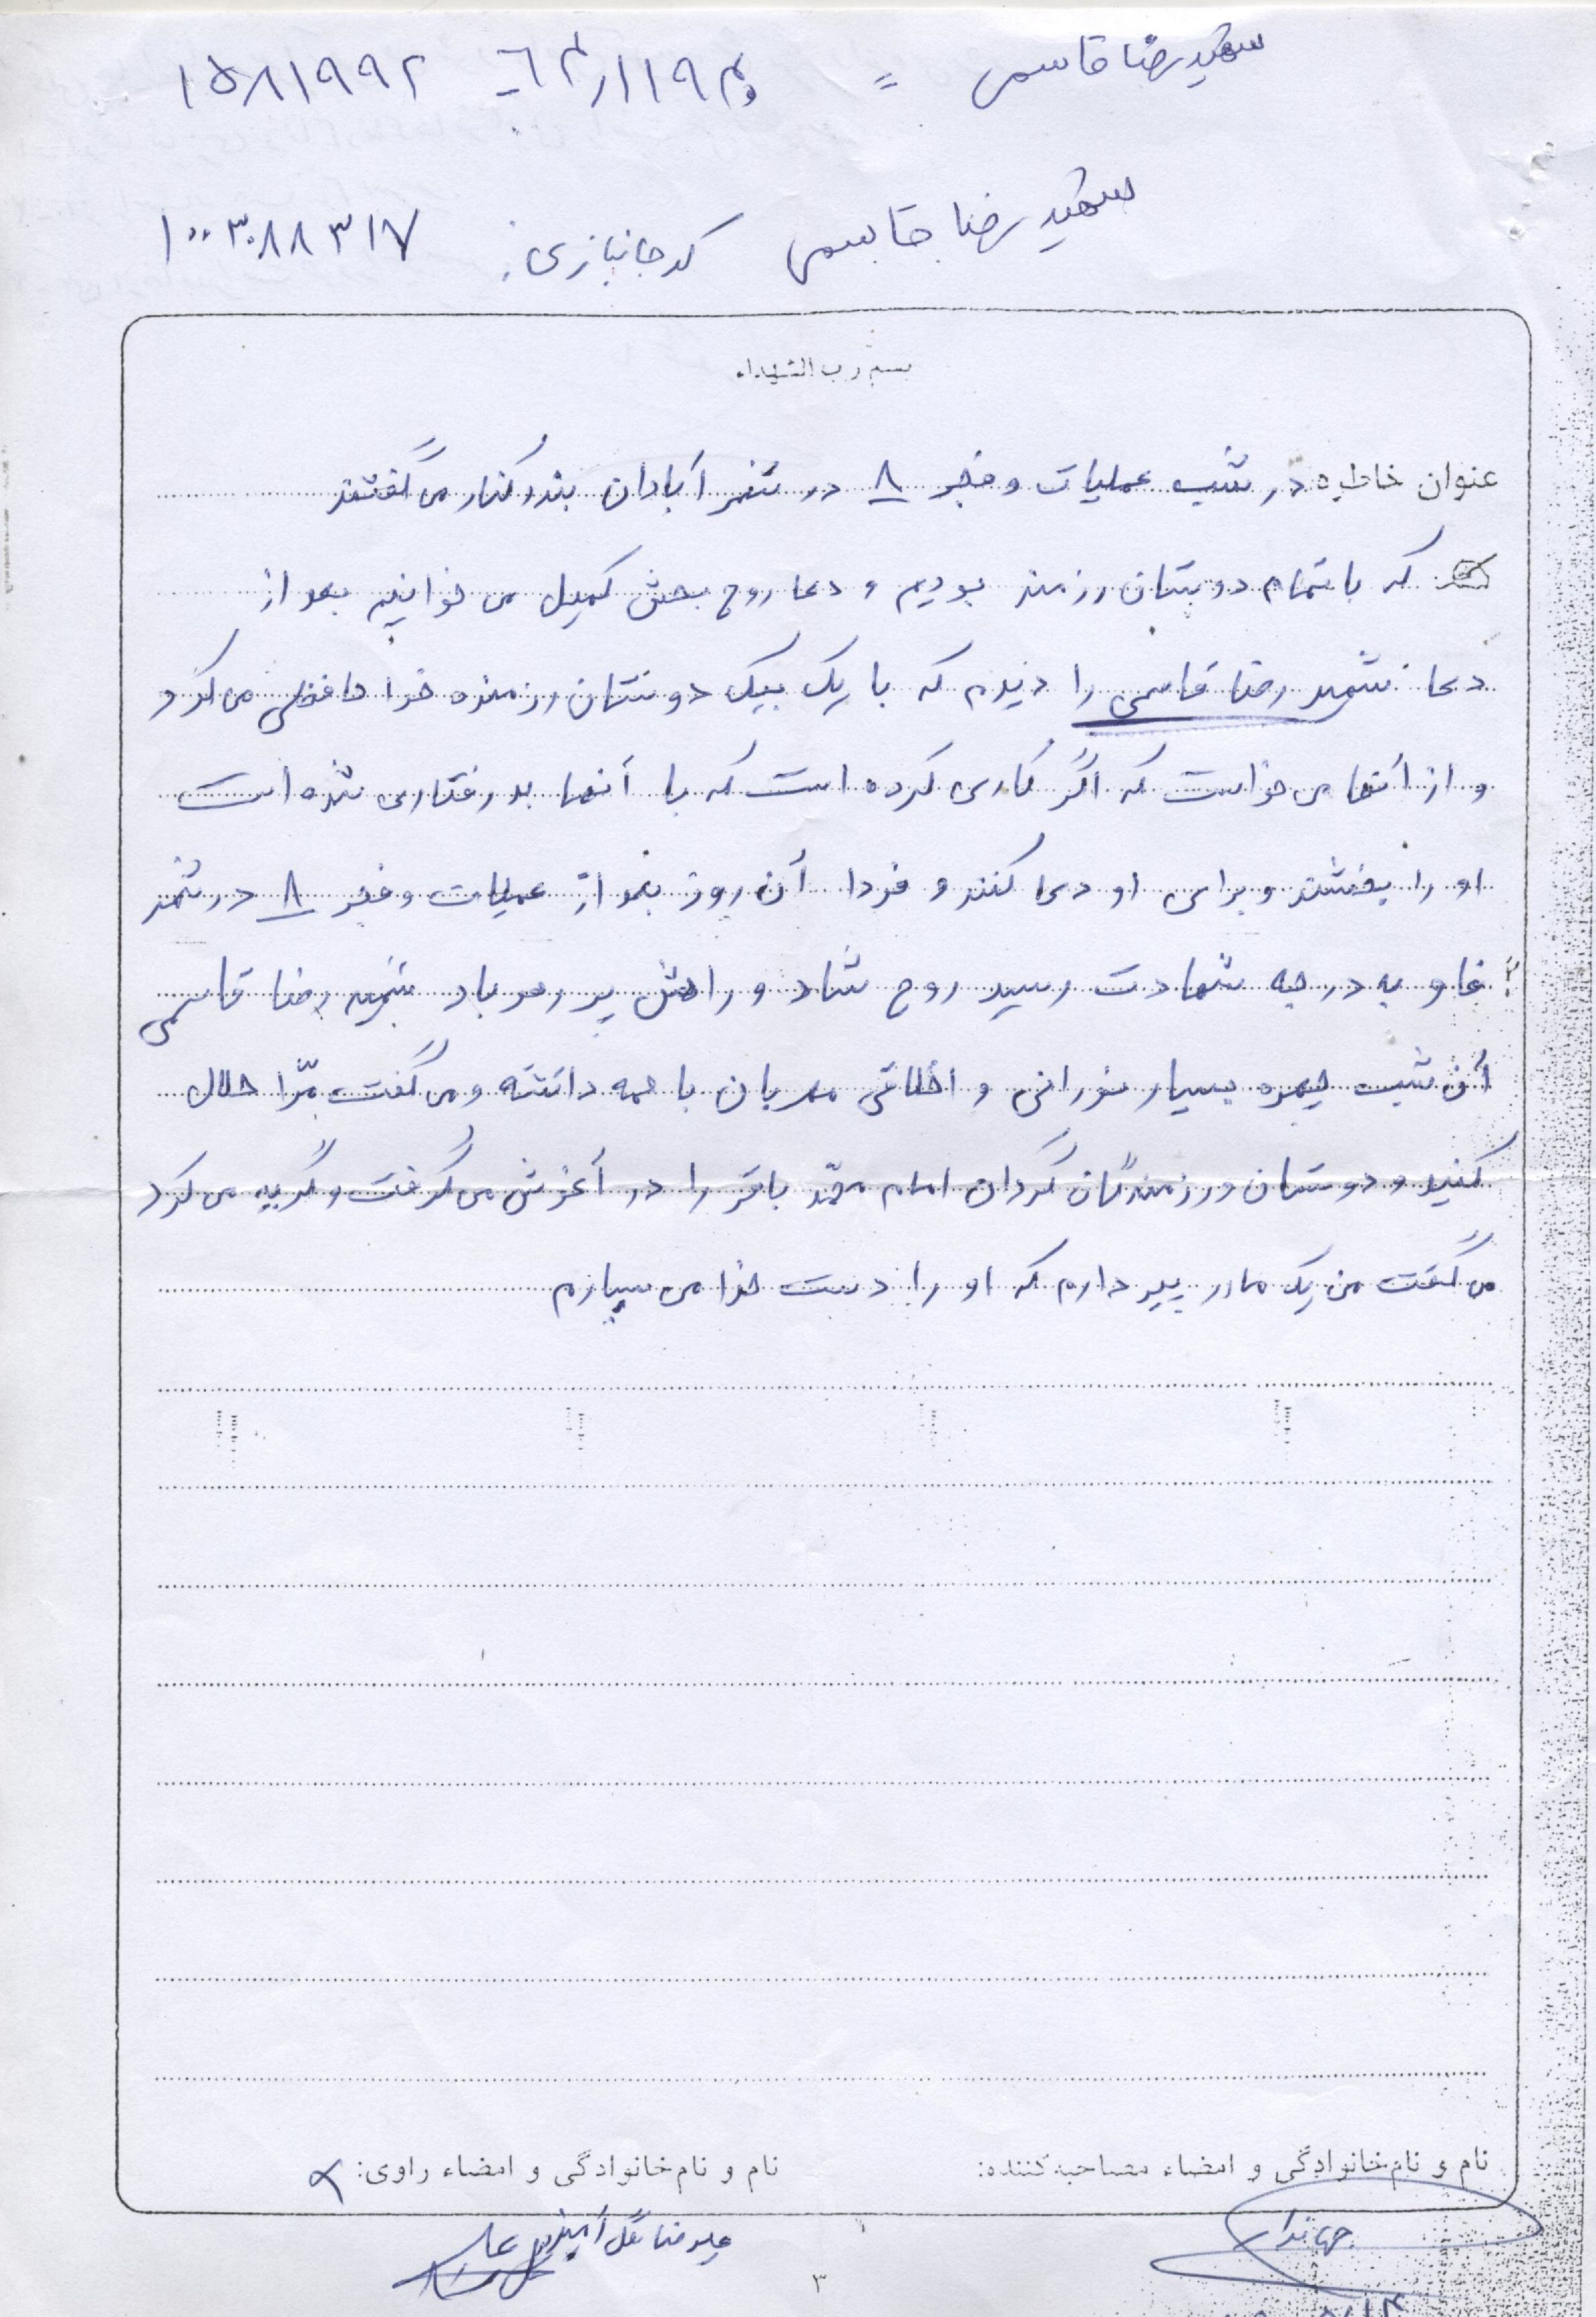 شهید رضا قاسمی =
۱۵۸۱۹۹۲
شهید رضا قاسمی کد جانبازی: ۱۰۰۳۰۸۸۳۱۷
بسم رب الشهداء
عنوان خاطره در شب عملیات و فجر ۸ در شهر آبادان بندر کنار می گفتند
که با تمام دوستان رزمند بودیم و دعا روح بخش کمیل می خوانیم بعد از
دعا شهید رضا قاسمی را دیدم که با یک بیک دوستان رزمنده خدا حافظی می کرد
و از آنها می خواست که اگر کاری کرده است که با آنها بد رفتاری شده است
او را ببخشند و برای او دعا کنند و فردا آن روز بعد از عملیات و فجر ۸ در شهر
فاو به درجه شهادت رسید روح شاد و راهش پر رهرو باد شهید رضا قاسمی
آن شب چهره بسیار نورانی و اخلاقی مهربان با همه داشته و می گفت مرا حلال
کنید و دوستان و رزمندگان گردان امام محمد باقر را در آغوش می گرفت و گریه می کرد
می گفت من یک مادر پیر دارم که او را دست خدا می سپارم
نام و نام خانوادگی و امضاء مصاحبه کننده: نام و نام خانوادگی و امضاء راوی:
علیرضا گل
۳